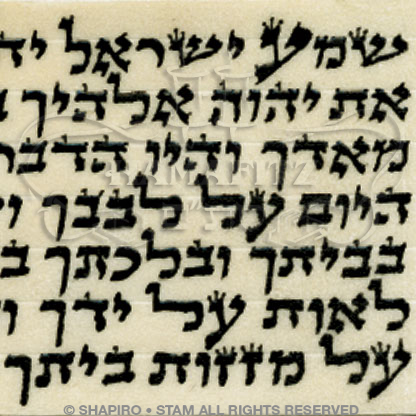 שמע ישראל
את יהוה אלהיך
מאדך והיו
היום על לבבך
בביתך ובלכתך
לאות על ידך
על מזזות ביתך
© SHAPIRO • STAM ALL RIGHTS RESERVED